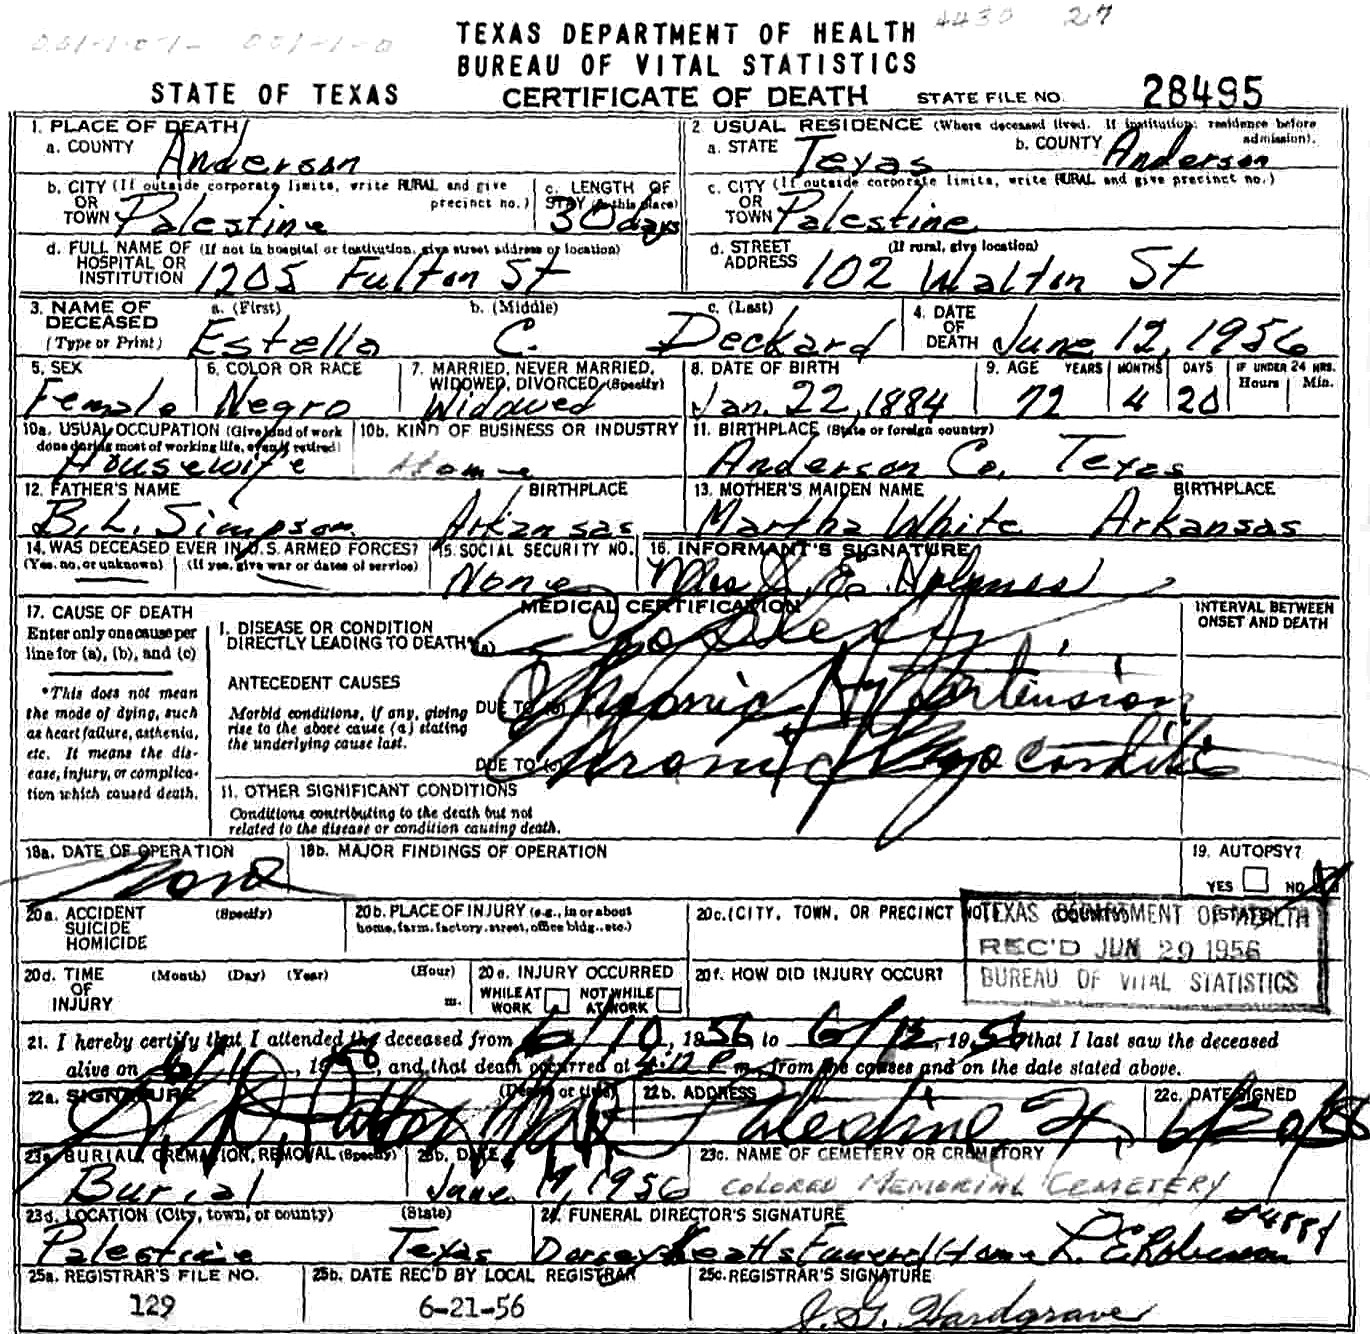 TEXAS DEPARTMENT OF HEALTH
BUREAU OF VITAL STATISTICS
STATE OF TEXAS CERTIFICATE OF DEATH STATE FILE NO. 28495
1. PLACE OF DEATH
a. COUNTY Anderson
2. USUAL RESIDENCE (Where deceased lived. If institution: residence before admission).
a. STATE Texas b. COUNTY Anderson
b. CITY (If outside corporate limits, write RURAL and give precinct no.)
OR
TOWN Palestine
c. LENGTH OF
STAY (in this place)
30 days
c. CITY (If outside corporate limits, write RURAL and give precinct no.)
OR
TOWN Palestine
d. FULL NAME OF (If not in hospital or institution, give street address or location)
HOSPITAL OR
INSTITUTION 1205 Fulton St
d. STREET (If rural, give location)
ADDRESS 102 Walton St
3. NAME OF DECEASED (Type or Print)
a. (First) b. (Middle) c. (Last)
Estella C. Deckard
4. DATE OF DEATH June 12, 1956
5. SEX
Female
6. COLOR OR RACE
Negro
7. MARRIED, NEVER MARRIED,
WIDOWED, DIVORCED (Specify)
Widowed
8. DATE OF BIRTH
Jan. 22, 1884
9. AGE YEARS MONTHS DAYS IF UNDER 24 HRS. Hours Min.
72 4 20
10a. USUAL OCCUPATION (Give kind of work
done during most of working life, even if retired)
Housewife
10b. KIND OF BUSINESS OR INDUSTRY
Home
11. BIRTHPLACE (State or foreign country)
Anderson Co. Texas
12. FATHER'S NAME BIRTHPLACE
B. L. Simpson Arkansas
13. MOTHER'S MAIDEN NAME BIRTHPLACE
Martha White Arkansas
14. WAS DECEASED EVER IN U.S. ARMED FORCES?
(Yes, no, or unknown) (If yes, give war or dates of service)
15. SOCIAL SECURITY NO.
None
16. INFORMANT'S SIGNATURE
Mrs J. E. Holmes
17. CAUSE OF DEATH
Enter only one cause per
line for (a), (b), and (c)
*This does not mean
the mode of dying, such
as heart failure, asthenia,
etc. It means the dis-
ease, injury, or complica-
tion which caused death.
MEDICAL CERTIFICATION
INTERVAL BETWEEN
ONSET AND DEATH
I. DISEASE OR CONDITION
DIRECTLY LEADING TO DEATH* (a) Apoplexy
ANTECEDENT CAUSES
Morbid conditions, if any, giving
rise to the above cause (a) stating
the underlying cause last.
DUE TO (b) Chronic Hypertension
DUE TO (c) Chronic Myocarditis
II. OTHER SIGNIFICANT CONDITIONS
Conditions contributing to the death but not
related to the disease or condition causing death.
18a. DATE OF OPERATION
None
18b. MAJOR FINDINGS OF OPERATION
19. AUTOPSY?
YES NO
20a. ACCIDENT (Specify)
SUICIDE
HOMICIDE
20b. PLACE OF INJURY (e.g., in or about
home, farm, factory, street, office bldg., etc.)
20c. (CITY, TOWN, OR PRECINCT NO.) (COUNTY) (STATE)
TEXAS DEPARTMENT OF HEALTH
REC'D JUN 29 1956
BUREAU OF VITAL STATISTICS
20d. TIME (Month) (Day) (Year) (Hour)
OF
INJURY m.
20e. INJURY OCCURRED
WHILE AT WORK NOT WHILE AT WORK
20f. HOW DID INJURY OCCUR?
21. I hereby certify that I attended the deceased from 6/10, 1956 to 6/12, 1956 that I last saw the deceased
alive on 6/, 19, and that death occurred at m., from the causes and on the date stated above.
22a. SIGNATURE (Degree or title)
22b. ADDRESS
Palestine
22c. DATE SIGNED
23a. BURIAL, CREMATION, REMOVAL (Specify)
Burial
23b. DATE
June 17, 1956
23c. NAME OF CEMETERY OR CREMATORY
COLORED MEMORIAL CEMETERY
23d. LOCATION (City, town, or county) (State)
Palestine Texas
24. FUNERAL DIRECTOR'S SIGNATURE
Dorsey-Keatts Funeral Home L. E. Robinson
25a. REGISTRAR'S FILE NO.
129
25b. DATE REC'D BY LOCAL REGISTRAR
6-21-56
25c. REGISTRAR'S SIGNATURE
J. G. Hardgrave